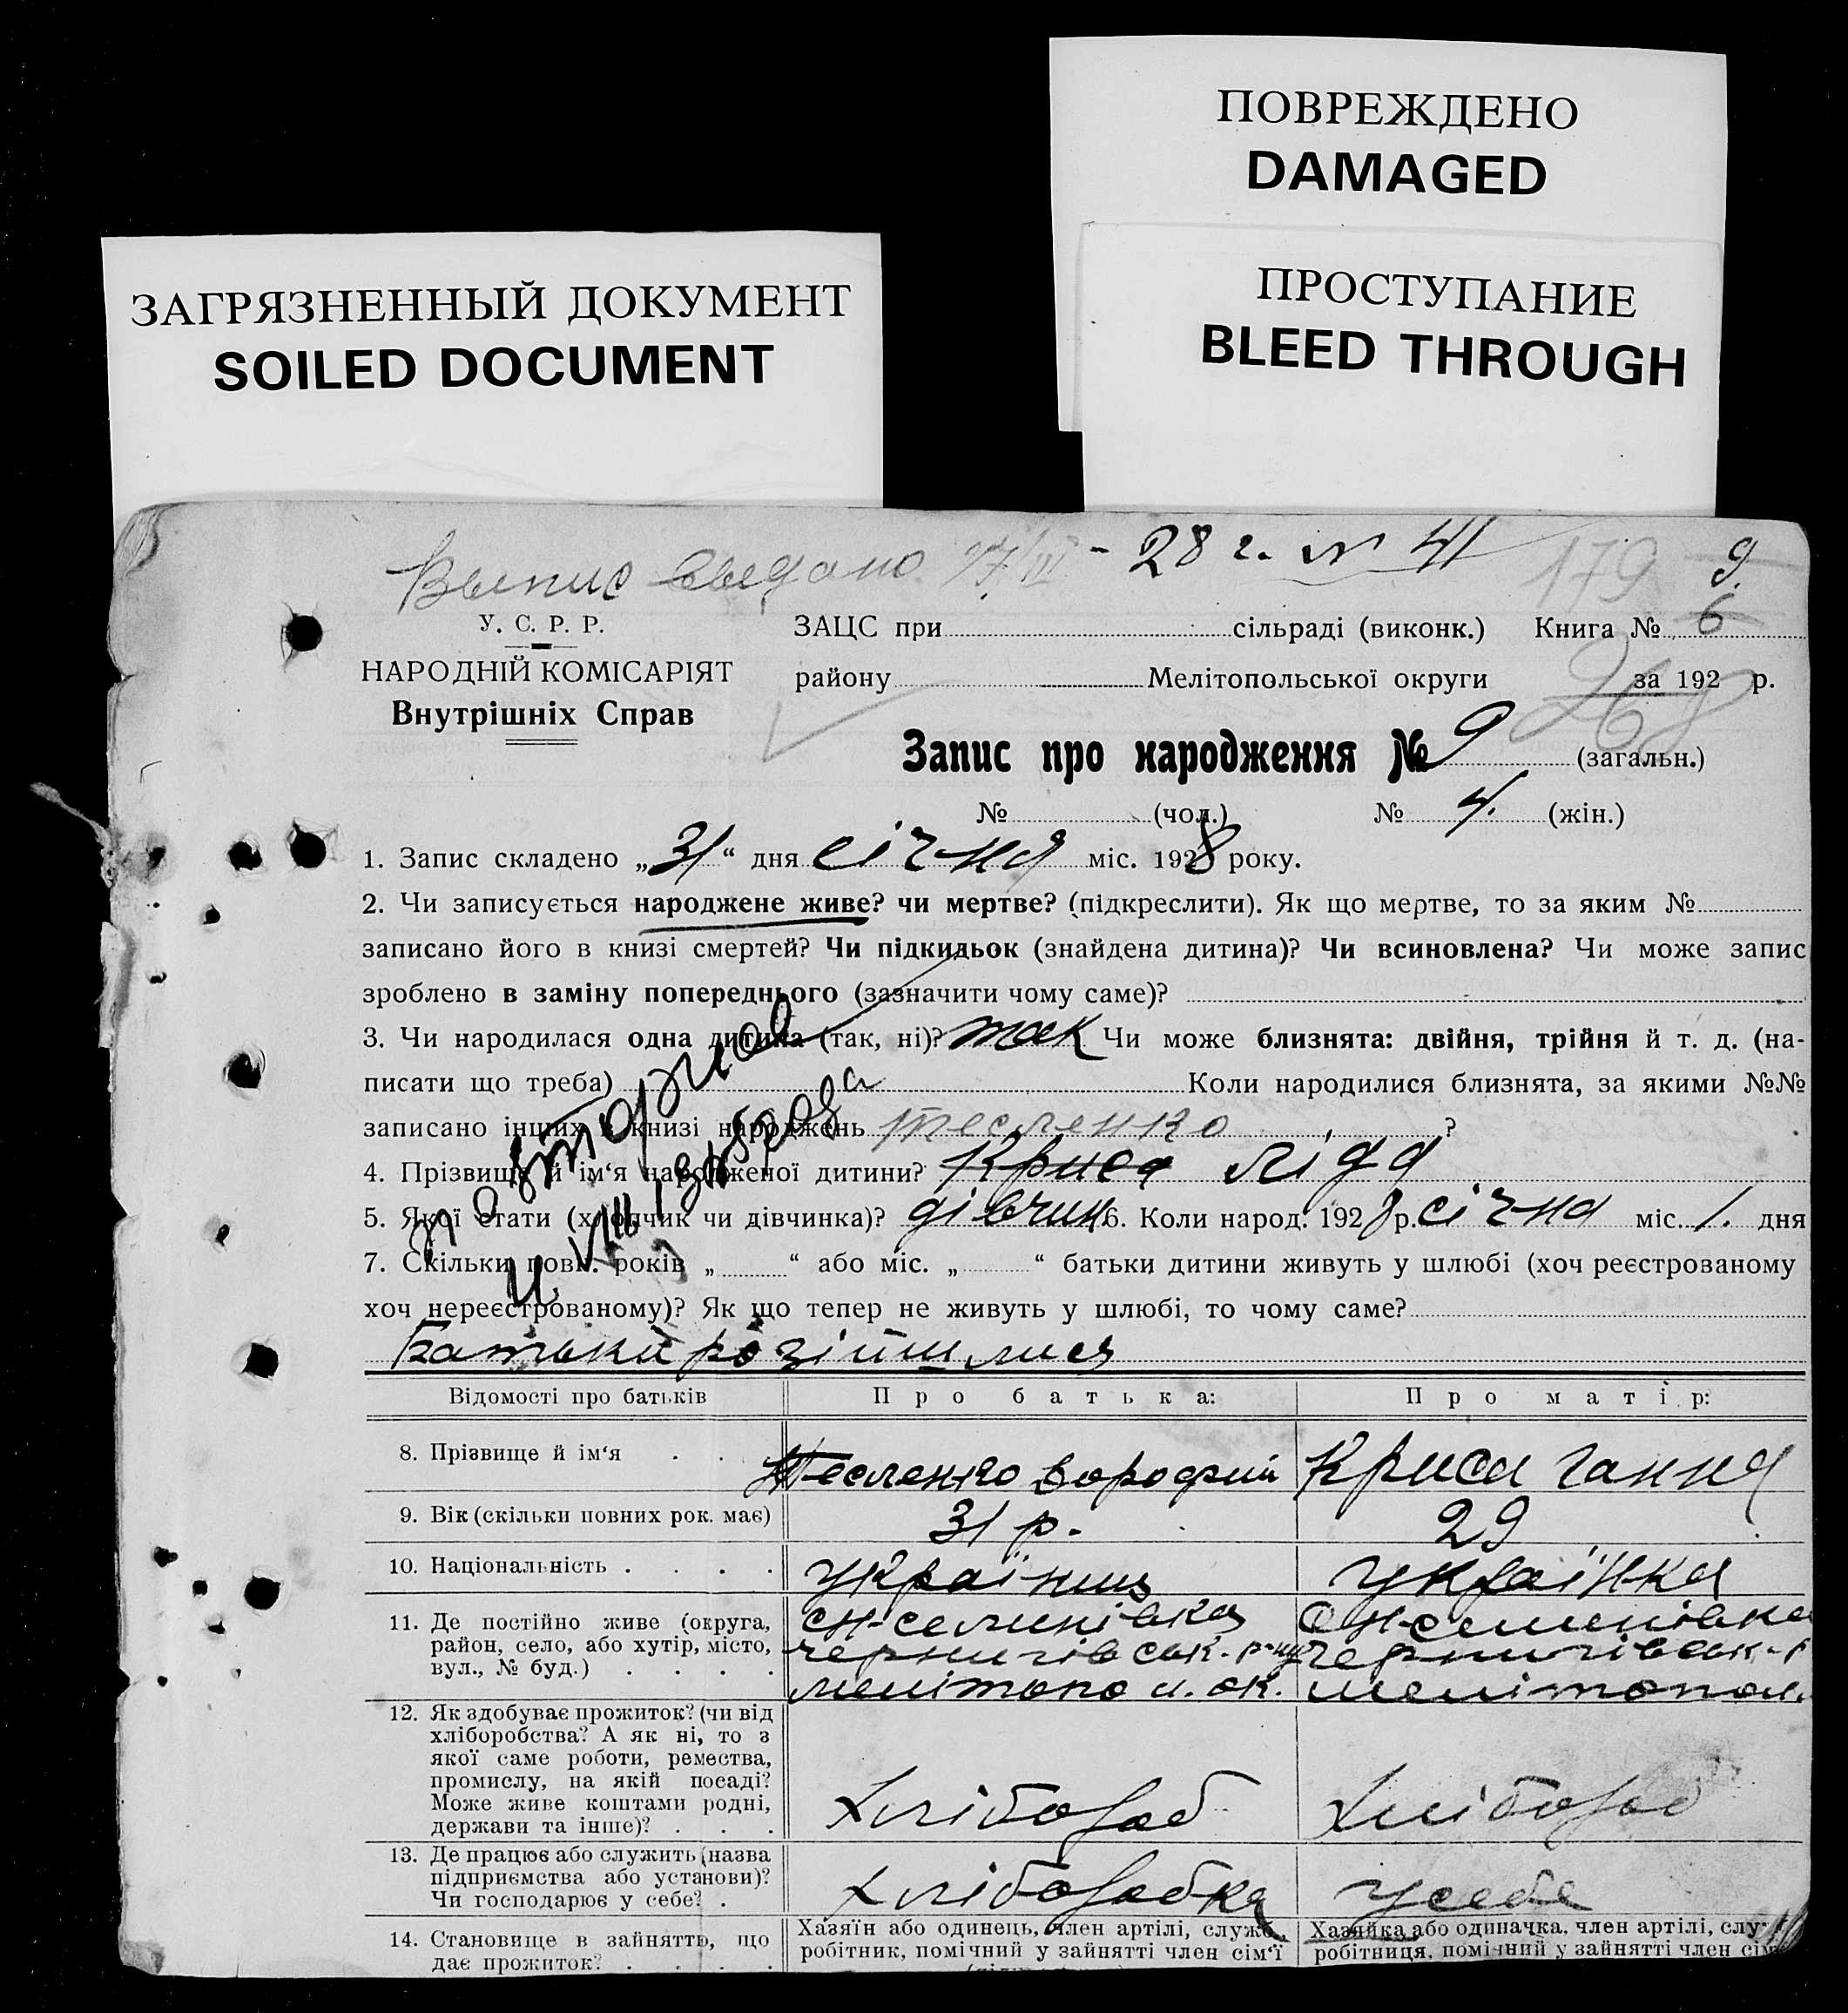 ПОВРЕЖДЕНО
DAMAGED
ЗАГРЯЗНЕННЫЙ ДОКУМЕНТ
SOILED DOCUMENT
ПРОСТУПАНИЕ
BLEED THROUGH
Выпис выдано 17/III - 28 г. № 41
179
9.
У. С. Р. Р.
ЗАЦС при сільраді (виконк.) Книга № 6
НАРОДНІЙ КОМІСАРІЯТ
району Мелітопольської округи за 192 р.
Внутрішніх Справ
Запис про народження № 9 (загальн.)
№ (чол.) № 4. (жін.)
1. Запис складено „31“ дня січня міс. 1928 року.
2. Чи записується народжене живе? чи мертве? (підкреслити). Як що мертве, то за яким №
записано його в книзі смертей? Чи підкидьок (знайдена дитина)? Чи всиновлена? Чи може запис
зроблено в заміну попереднього (зазначити чому саме)?
3. Чи народилася одна дитина (так, ні)? так Чи може близнята: двійня, трійня й т. д. (на-
писати що треба) Коли народилися близнята, за якими №№
записано інших в книзі народжень тесленко ?
4. Прізвище й ім‘я народженої дитини? Криса Ліда
5. Якої стати (хлопчик чи дівчинка)? дівчин 6. Коли народ. 1928 р. січня міс. 1. дня
7. Скільки повн. років „ “ або міс. „ “ батьки дитини живуть у шлюбі (хоч реєстрованому
хоч нереєстрованому)? Як що тепер не живуть у шлюбі, то чому саме?
Батьки розійшлися
Відомості про батьків Про батька: Про матір:
8. Прізвище й ім‘я Тесленко Дорофий Криса Ганна
9. Вік (скільки повних рок. має) 31 р. 29
10. Національність українць українка
11. Де постійно живе (округа, сн-семенівка Сн-семенівка
район, село, або хутір, місто, чернигівськ. р-ну чернигівськ-р
вул., № буд.) мелітопол. ок. мелітопол.
12. Як здобуває прожиток? (чи від
хліборобства? А як ні, то з
якої саме роботи, ремества,
промислу, на якій посаді?
Може живе коштами родні, Хлібороб Хлібороб
держави та інше)?
13. Де працює або служить (назва
підприємства або установи)? Хліборобка усебе
Чи господарює у себе?
14. Становище в зайняттю, що Хазяїн або одинець, член артілі, служб. Хазяйка або одиначка, член артілі, служ
дає прожиток? робітник, помічний у зайнятті член сім‘ї робітниця, помічний у зайнятті член сім